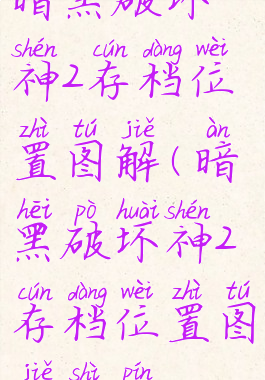 暗黑破坏
shén cún dàng wèi
神2存档位
zhì tú jiě àn
置图解(暗
hēi pò huài shén
黑破坏神2
cún dàng wèi zhì tú
存档位置图
jiě shì pín